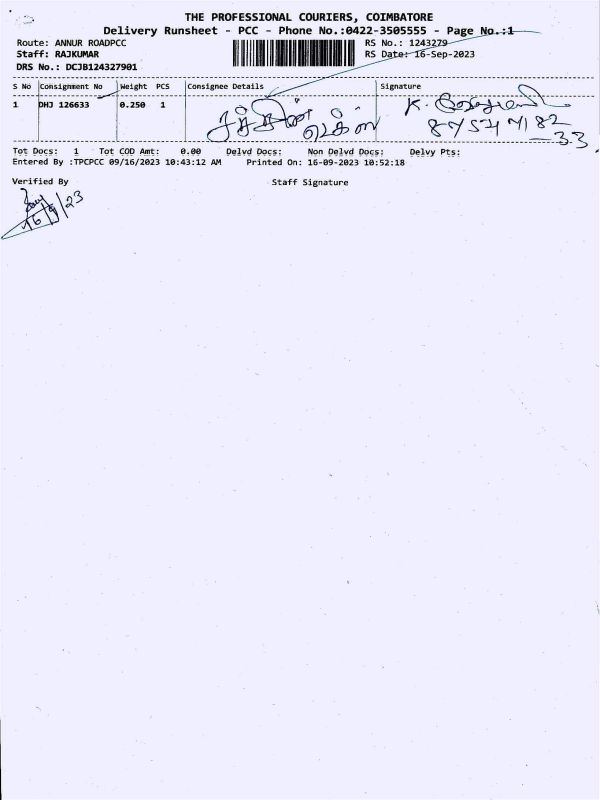 THE PROFESSIONAL COURIERS, COIMBATORE
Delivery Runsheet - PCC - Phone No.:0422-3505555 - Page No.:1
Route: ANNUR ROADPCC
RS No.: 1243279
Staff: RAJKUMAR
RS Date: 16-Sep-2023
DRS No.: DCJB124327901
S No Consignment No Weight PCS Consignee Details Signature
1 DHJ 126633 0.250 1
K.
Tot Docs: 1 Tot COD Amt: 0.00 Delvd Docs: Non Delvd Docs: Delvy Pts:
Entered By :TPCPCC 09/16/2023 10:43:12 AM Printed On: 16-09-2023 10:52:18
Verified By Staff Signature
16/9/23